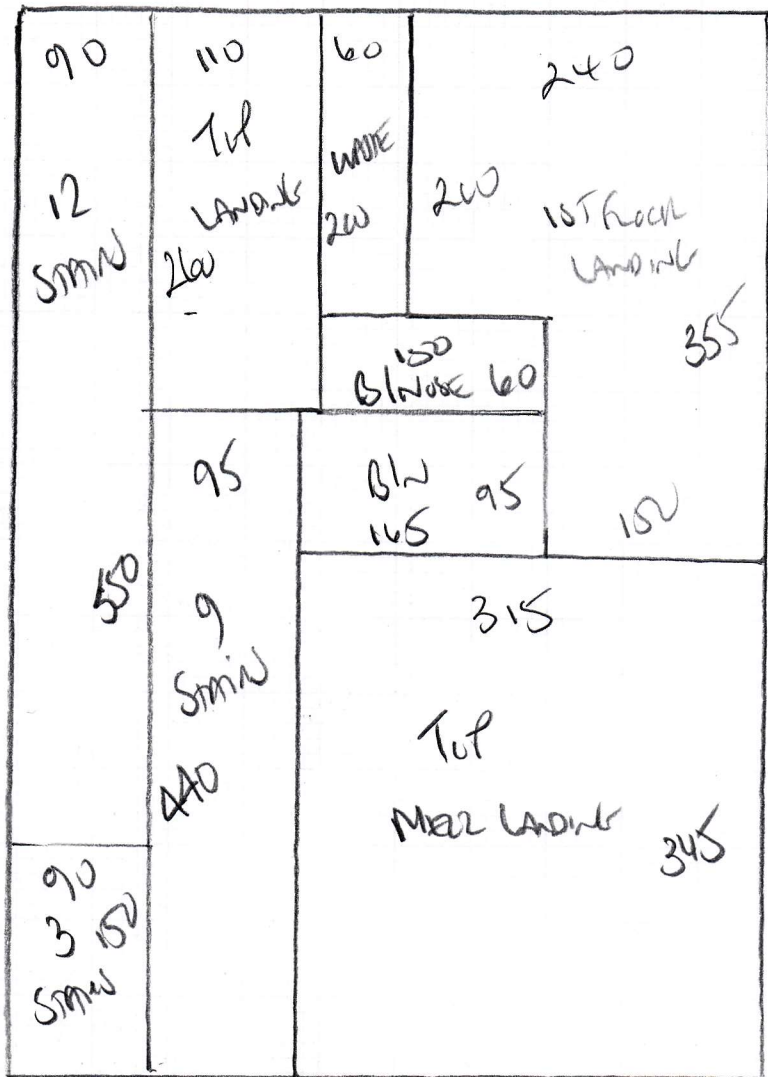 90
12
STAIR
550
90
3 150
STAIRS
110
TOP
LANDING
260
60
WASTE
200
240
200
1ST FLOOR
LANDING
355
150
150
B/NOSE 60
B/N 95
165
95
9
STAIR
440
315
TOP
MEZZ LANDING
345